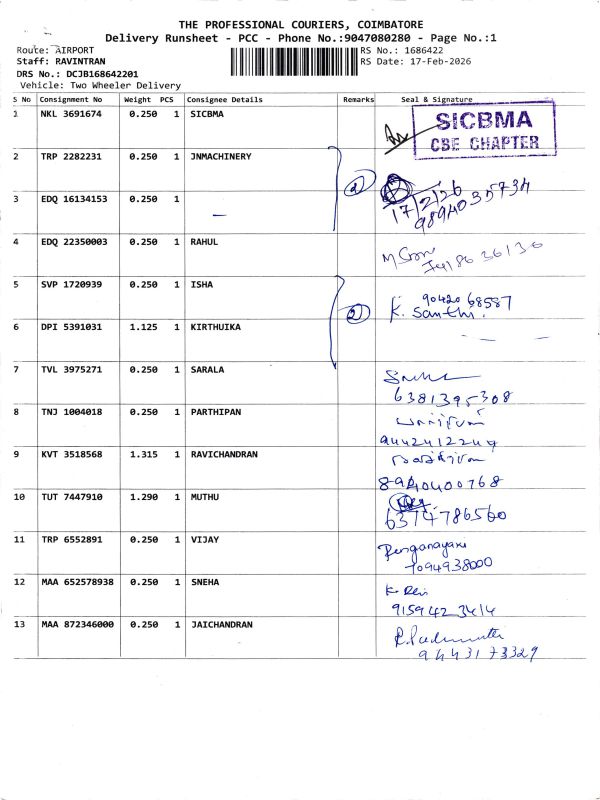 THE PROFESSIONAL COURIERS, COIMBATORE
Delivery Runsheet - PCC - Phone No.:9047080280 - Page No.:1
Route: AIRPORT
RS No.: 1686422
Staff: RAVINTRAN
RS Date: 17-Feb-2026
DRS No.: DCJB168642201
Vehicle: Two Wheeler Delivery
S No Consignment No Weight PCS Consignee Details Remarks Seal & Signature
1 NKL 3691674 0.250 1 SICBMA SICBMA
CBE CHAPTER
2 TRP 2282231 0.250 1 JNMACHINERY
2
17/2/26
9894035734
3 EDQ 16134153 0.250 1 —
4 EDQ 22350003 0.250 1 RAHUL
5 SVP 1720939 0.250 1 ISHA
2
9042068587
K. Santhi.
6 DPI 5391031 1.125 1 KIRTHUIKA
7 TVL 3975271 0.250 1 SARALA
6381395308
8 TNJ 1004018 0.250 1 PARTHIPAN
9442412247
9 KVT 3518568 1.315 1 RAVICHANDRAN
8940400768
10 TUT 7447910 1.290 1 MUTHU
6374786560
11 TRP 6552891 0.250 1 VIJAY
Renganayaki
7094938000
12 MAA 652578938 0.250 1 SNEHA
9159423414
13 MAA 872346000 0.250 1 JAICHANDRAN
9443173329